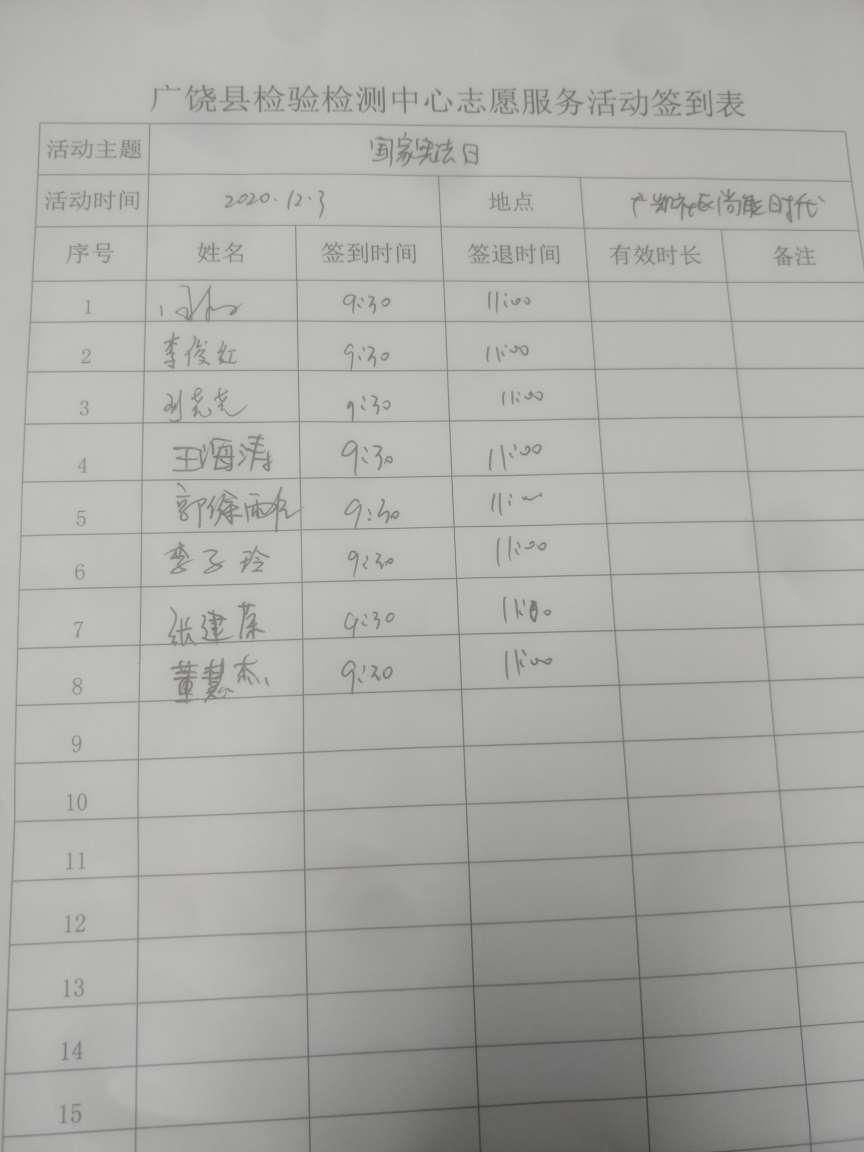 广饶县检验检测中心志愿服务活动签到表
活动主题 国家宪法日
活动时间 2020.12.3 地点 社区尚能时代
序号 姓名 签到时间 签退时间 有效时长 备注
1 9:30 11:00
2 李俊红 9:30 11:00
3 刘尧尧 9:30 11:00
4 王海涛 9:30 11:00
5 郭徐雨 9:30 11:00
6 李子玲 9:30 11:00
7 张建荣 9:30 11:00
8 董慧杰 9:30 11:00
9
10
11
12
13
14
15